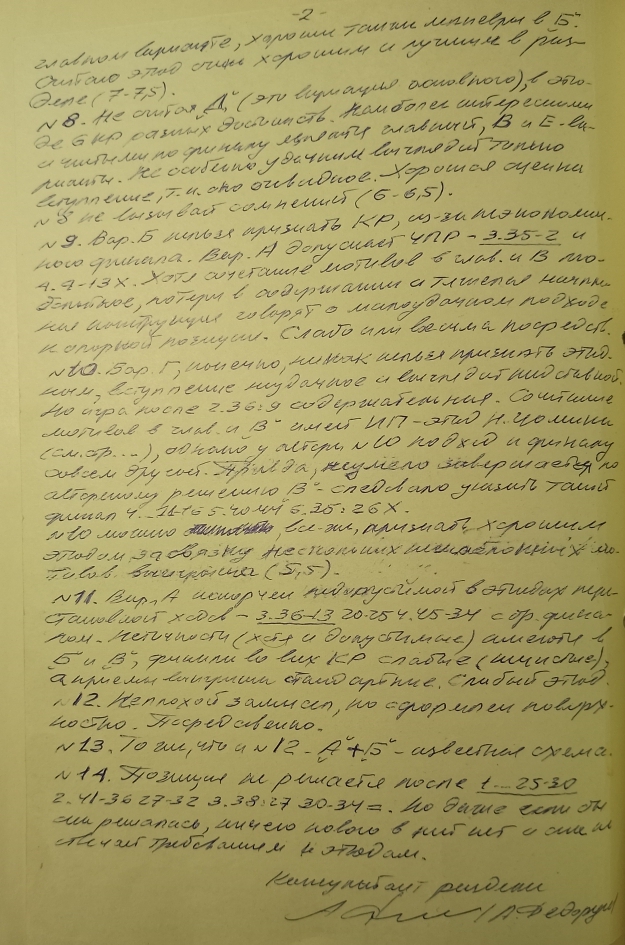 -2-
главном варианте, хороши тихие маневры в "Б".
Считаю этюд очень хорошим и лучшим в раз-
деле (7-7,5).
N8. Не считая "Д" (это вариация основного), в этю-
де 6 КР разных достоинств. Наиболее интересными
и чистыми по финалу являются главный, В и Е-ва-
рианты. Не особенно удачным выглядит только
вступление, т.к. оно очевидное. Хорошая оценка
N8 не вызывает сомнений (6-6,5).
N9. Вар. Б нельзя признать КР, из-за неэкономич-
ного финала. Вар. А допускает ЧПР - 3.35-2 и
4.4-13X. Хотя сочетание мотивов в глав. и В лю-
бопытное, потери в содержании и тяжелая началь-
ная конструкция говорят о малоудачном подходе
к опорной позиции. Слабо или весьма посредств.
N10. Вар. Г, конечно, никак нельзя признать этюд-
ным, вступление неудачное и выглядит подставкой.
Но игра после 2.36:9 содержательная. Сочетание
мотивов в глав. и "В" имеет ИП-этюд Н.
(см. стр. ...), однако у автора N10 подход к финалу
совсем другой. Правда, неумело завершается по
авторскому решению "В" - следовало указать такой
финал 4...11-16 5.40-44 6.35:26X.
N10 можно все-же, признать хорошим
этюдом, за связку нескольких мо-
тивов выигрыша (5,5).
N11. Вар. А испорчен недопустимой в этюдах пере-
становкой ходов - 3.36-13 20-25 4.45-34 с др. фина-
лом. Нечистости (хотя и допустимые) имеются в
"Б" и "В", финалы во всех КР слабые
а приемы выигрыша стандартные. Слабый этюд.
N12. Неплохой замысел, но оформлен поверх-
ностно. Посредственно.
N13. То же, что и N12 - "А"+"Б" - известная схема.
N14. Позиция не решается после 1...25-30
2.41-36 27-32 3.38:27 30-34=. Но даже если бы
она решалась, ничего нового в ней нет и она не
отвечает требованиям к этюдам.
Консультант раздела
/А. Федорук/